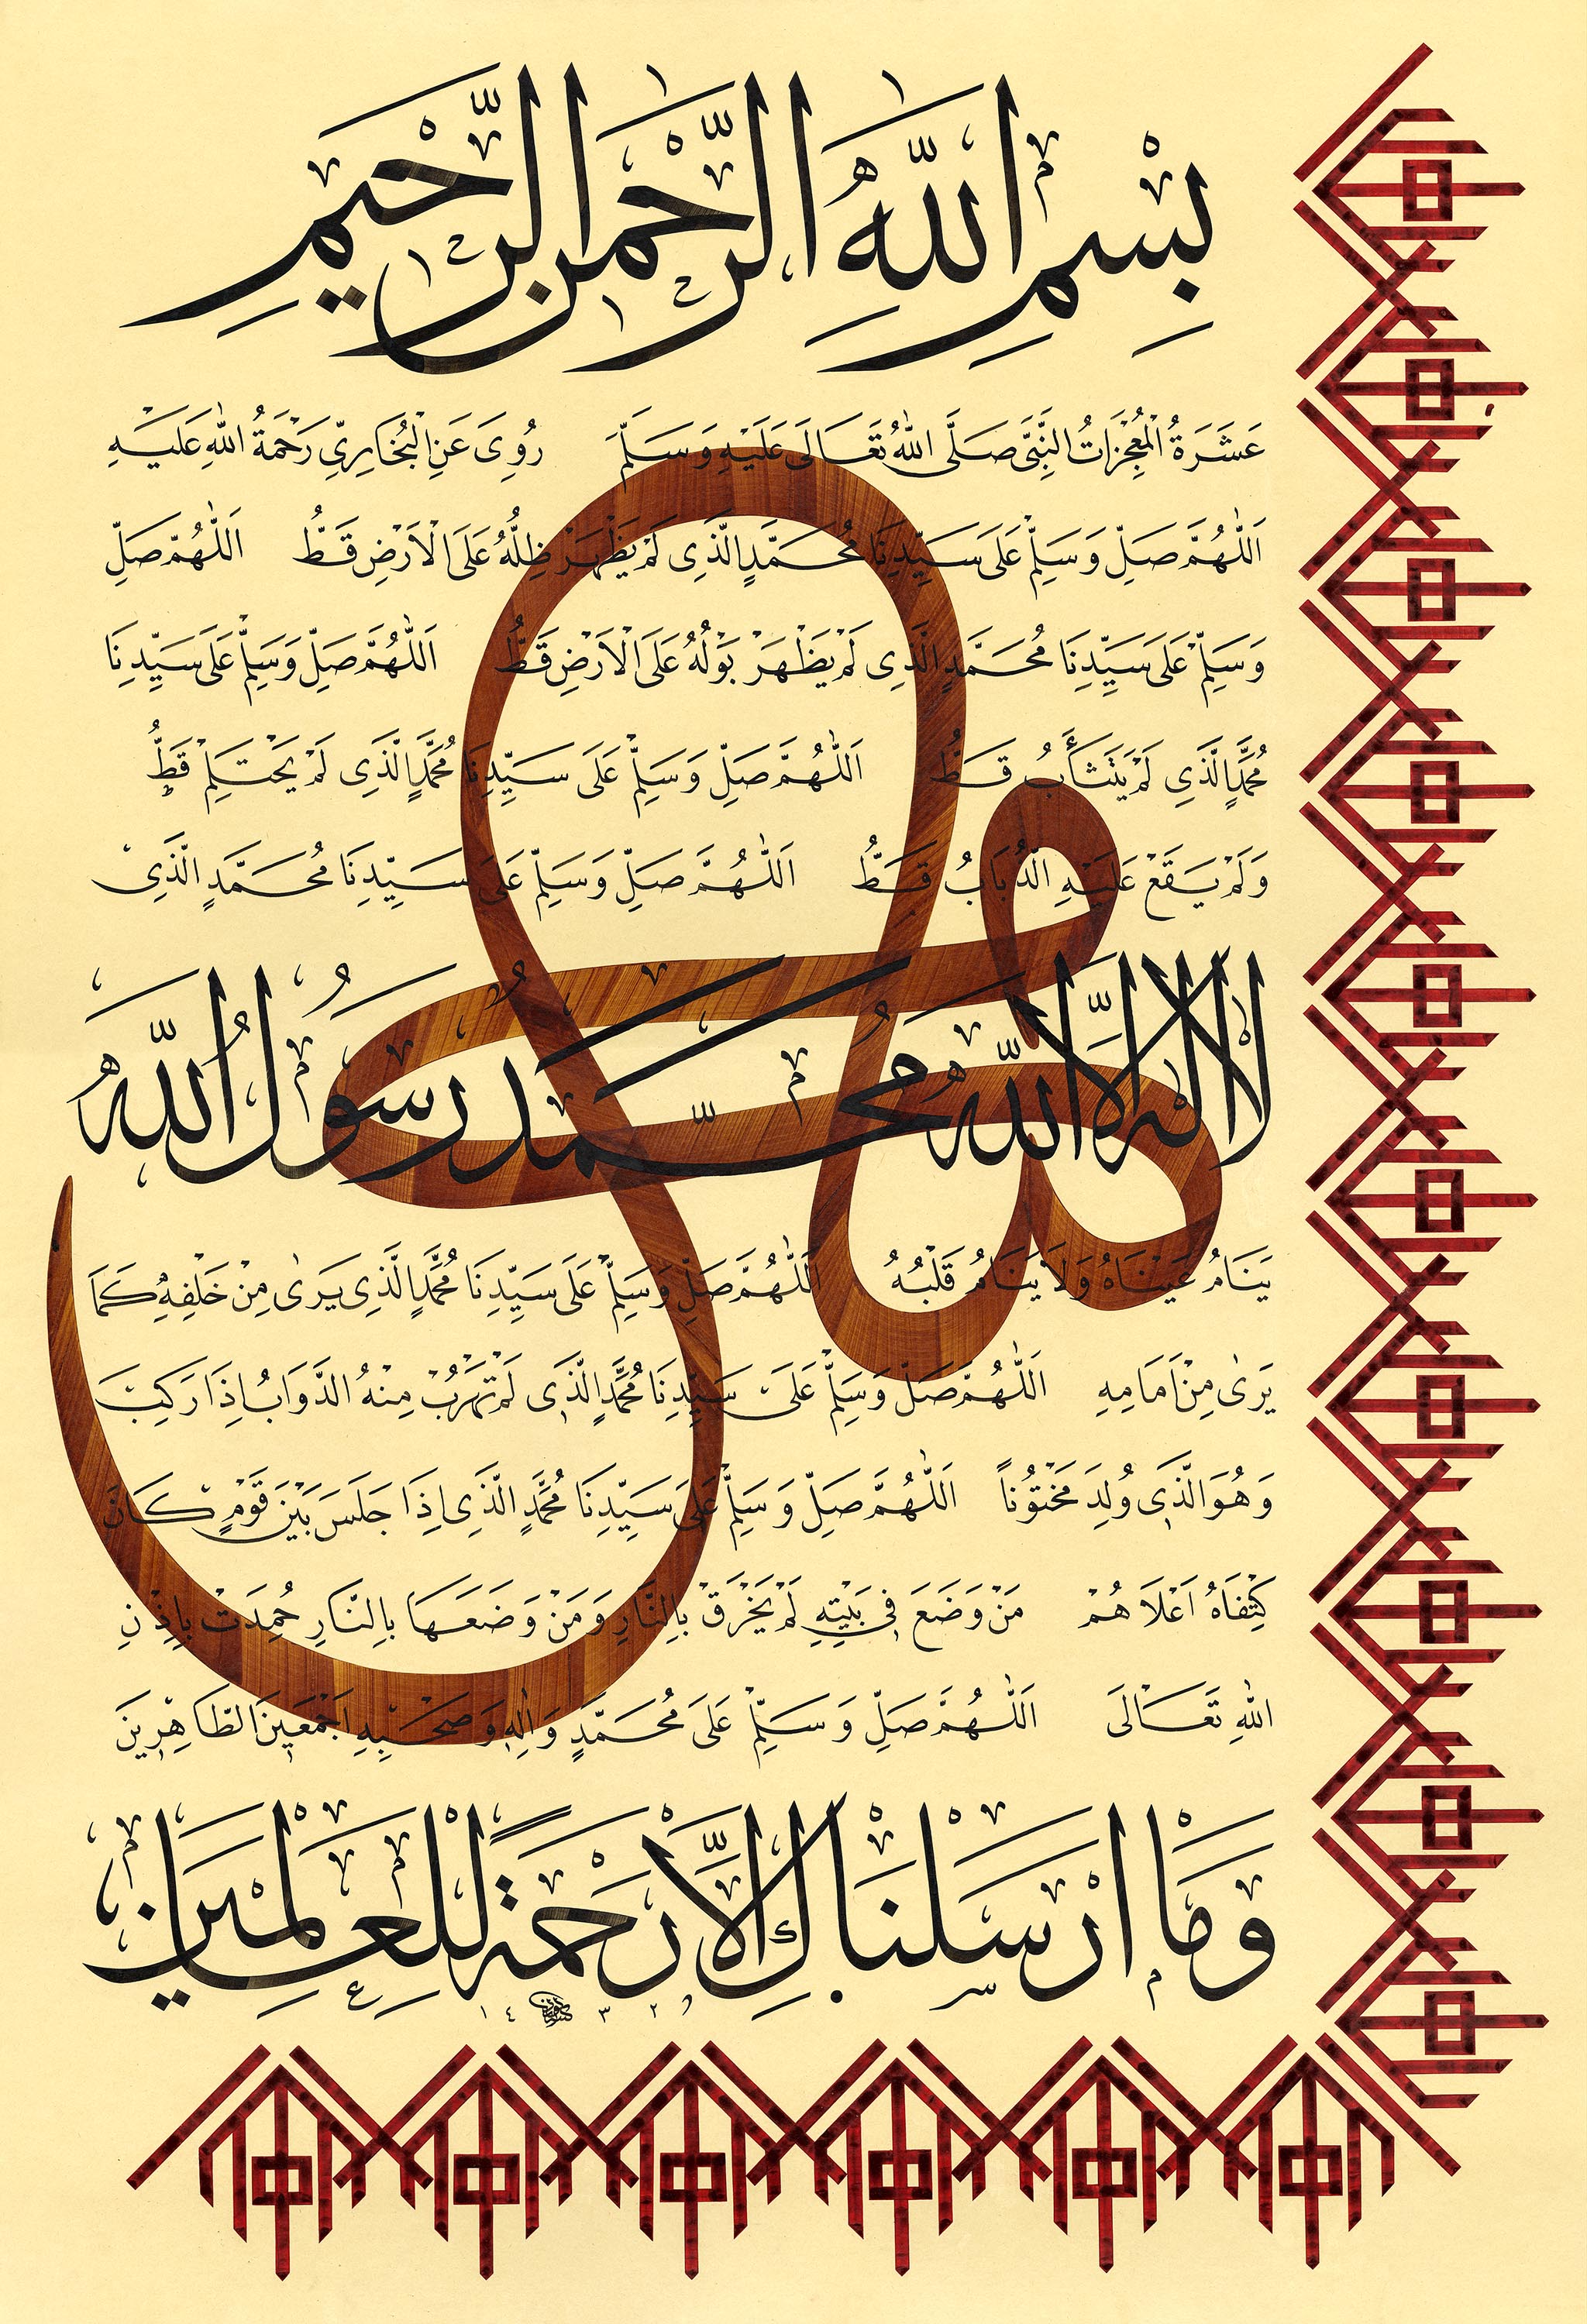 بِسْمِ اللّٰهِ الرَّحْمٰنِ الرَّحِيمِ
عَشَرَةُ الْمُعْجِزَاتُ النَّبِيِّ صَلَّى اللّٰهُ تَعَالَى عَلَيْهِ وَسَلَّمَ رُوِىَ عَنِ الْبُخَارِيِّ رَحْمَةُ اللّٰهِ عَلَيْهِ
اَللّٰهُمَّ صَلِّ وَسَلِّمْ عَلَى سَيِّدِنَا مُحَمَّدٍ الَّذِى لَمْ يَظْهَرْ ظِلُّهُ عَلَى الْاَرْضِ قَطُّ اَللّٰهُمَّ صَلِّ
وَسَلِّمْ عَلَى سَيِّدِنَا مُحَمَّدٍ الَّذِى لَمْ يَظْهَرْ بَوْلُهُ عَلَى الْاَرْضِ قَطُّ اَللّٰهُمَّ صَلِّ وَسَلِّمْ عَلَى سَيِّدِنَا
مُحَمَّدٍ الَّذِى لَمْ يَتَثَأَبُ قَطُّ اَللّٰهُمَّ صَلِّ وَسَلِّمْ عَلَى سَيِّدِنَا مُحَمَّدٍ الَّذِى لَمْ يَحْتَلِمْ قَطُّ
وَلَمْ يَقَعْ عَلَيْهِ الذُّبَابُ قَطُّ اَللّٰهُمَّ صَلِّ وَسَلِّمْ عَلَى سَيِّدِنَا مُحَمَّدٍ الَّذِى
لَا اِلٰهَ اِلَّا اللّٰهُ مُحَمَّدٌ رَسُولُ اللّٰهِ
يَنَامُ عَيْنَاهُ وَلَا يَنَامُ قَلْبُهُ اَللّٰهُمَّ صَلِّ وَسَلِّمْ عَلَى سَيِّدِنَا مُحَمَّدٍ الَّذِى يَرٰى مِنْ خَلْفِهِ كَمَا
يَرٰى مِنْ اَمَامِهِ اَللّٰهُمَّ صَلِّ وَسَلِّمْ عَلَى سَيِّدِنَا مُحَمَّدٍ الَّذِى لَمْ تَهْرُبْ مِنْهُ الدَّوَابُ اِذَا رَكِبَ
وَهُوَ الَّذِى وُلِدَ مَخْتُونًا اَللّٰهُمَّ صَلِّ وَسَلِّمْ عَلَى سَيِّدِنَا مُحَمَّدٍ الَّذِى اِذَا جَلَسَ بَيْنَ قَوْمٍ كَانَ
كِتْفَاهُ اَعْلَاهُمْ مَنْ وَضَعَ فِى بَيْتِهِ لَمْ يَخْرَقْ بِالنَّارِ وَمَنْ وَضَعَهَا بِالنَّارِ خُمِدَتْ بِاِذْنِ
اللّٰهِ تَعَالَى اَللّٰهُمَّ صَلِّ وَسَلِّمْ عَلَى مُحَمَّدٍ وَاٰلِهِ وَصَحْبِهِ اَجْمَعِينَ الطَّاهِرِينَ
وَمَا اَرْسَلْنَاكَ اِلَّا رَحْمَةً لِلْعَالَمِينَ
١٤ ٣٢